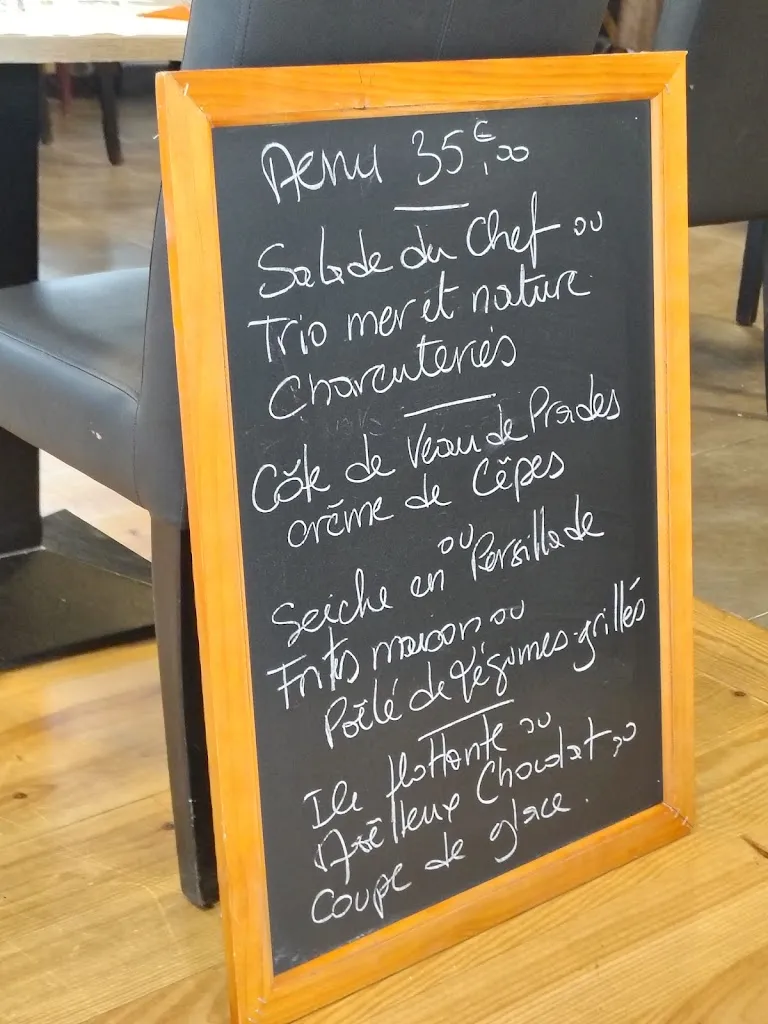 Menu 35€,00
Salade du Chef ou
Trio mer et nature
Charcuteries
Côte de Veau de Prades
crème de Cêpes
ou
Seiche en Persillade
Frites maison ou
Poêlé de légumes grillés
Ile flottante ou
Moëlleux Chocolat ou
Coupe de glace.